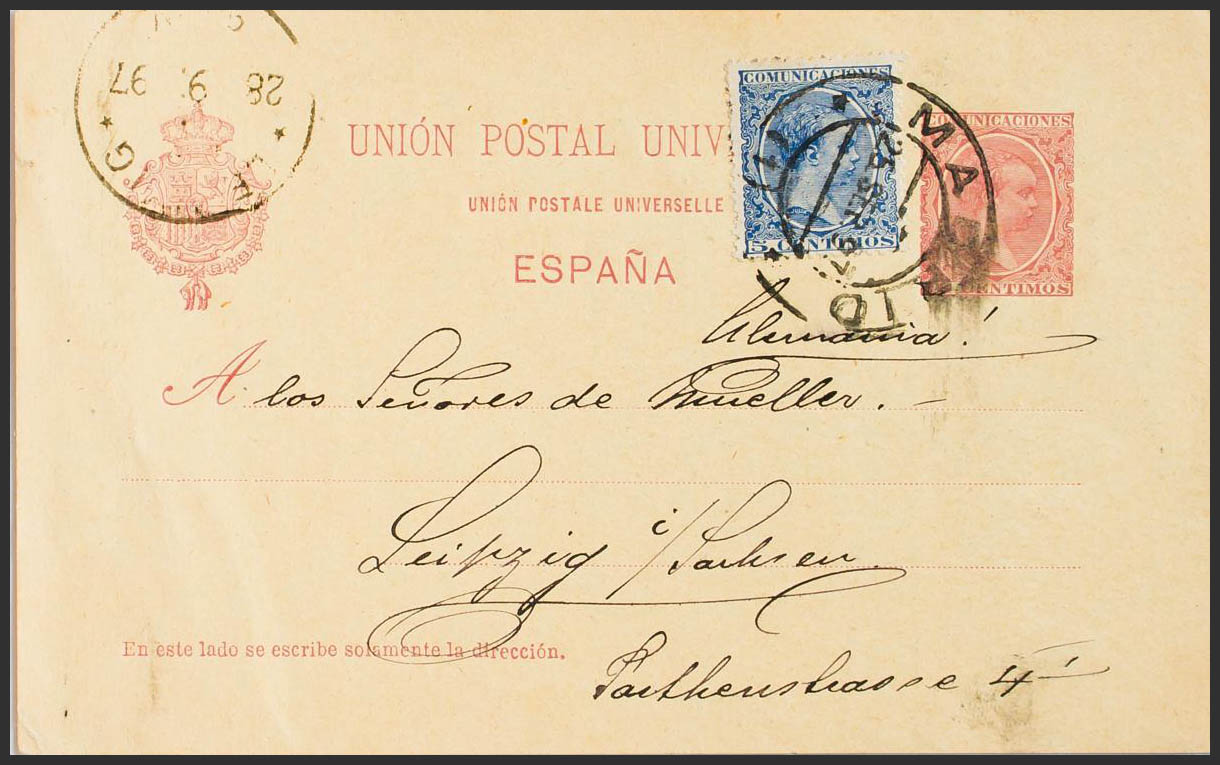 28 9. 97
UNIÓN POSTAL UNIV
UNIÓN POSTALE UNIVERSELLE
ESPAÑA
COMUNICACIONES
5 CENTIMOS
MADRID
COMUNICACIONES
CENTIMOS
Alemania!
A los Señores de Mueller. -
Leipzig i/Sachsen.
En este lado se escribe solamente la dirección.
Parthenstrasse 4